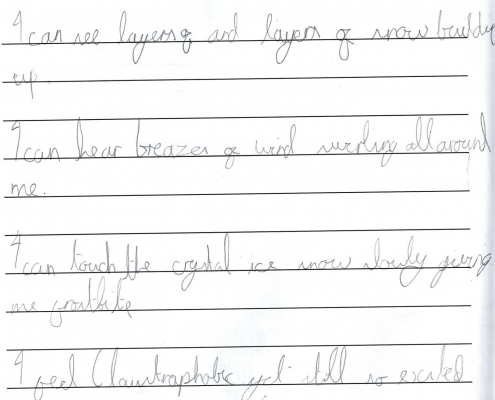 I can see layers of and layers of snow buildy
up.
I can hear breazes of wind swirling all around
me.
I can touch the crystal ice snow slowly giving
me frostbite
I feel Claustraphobic yet still so excited